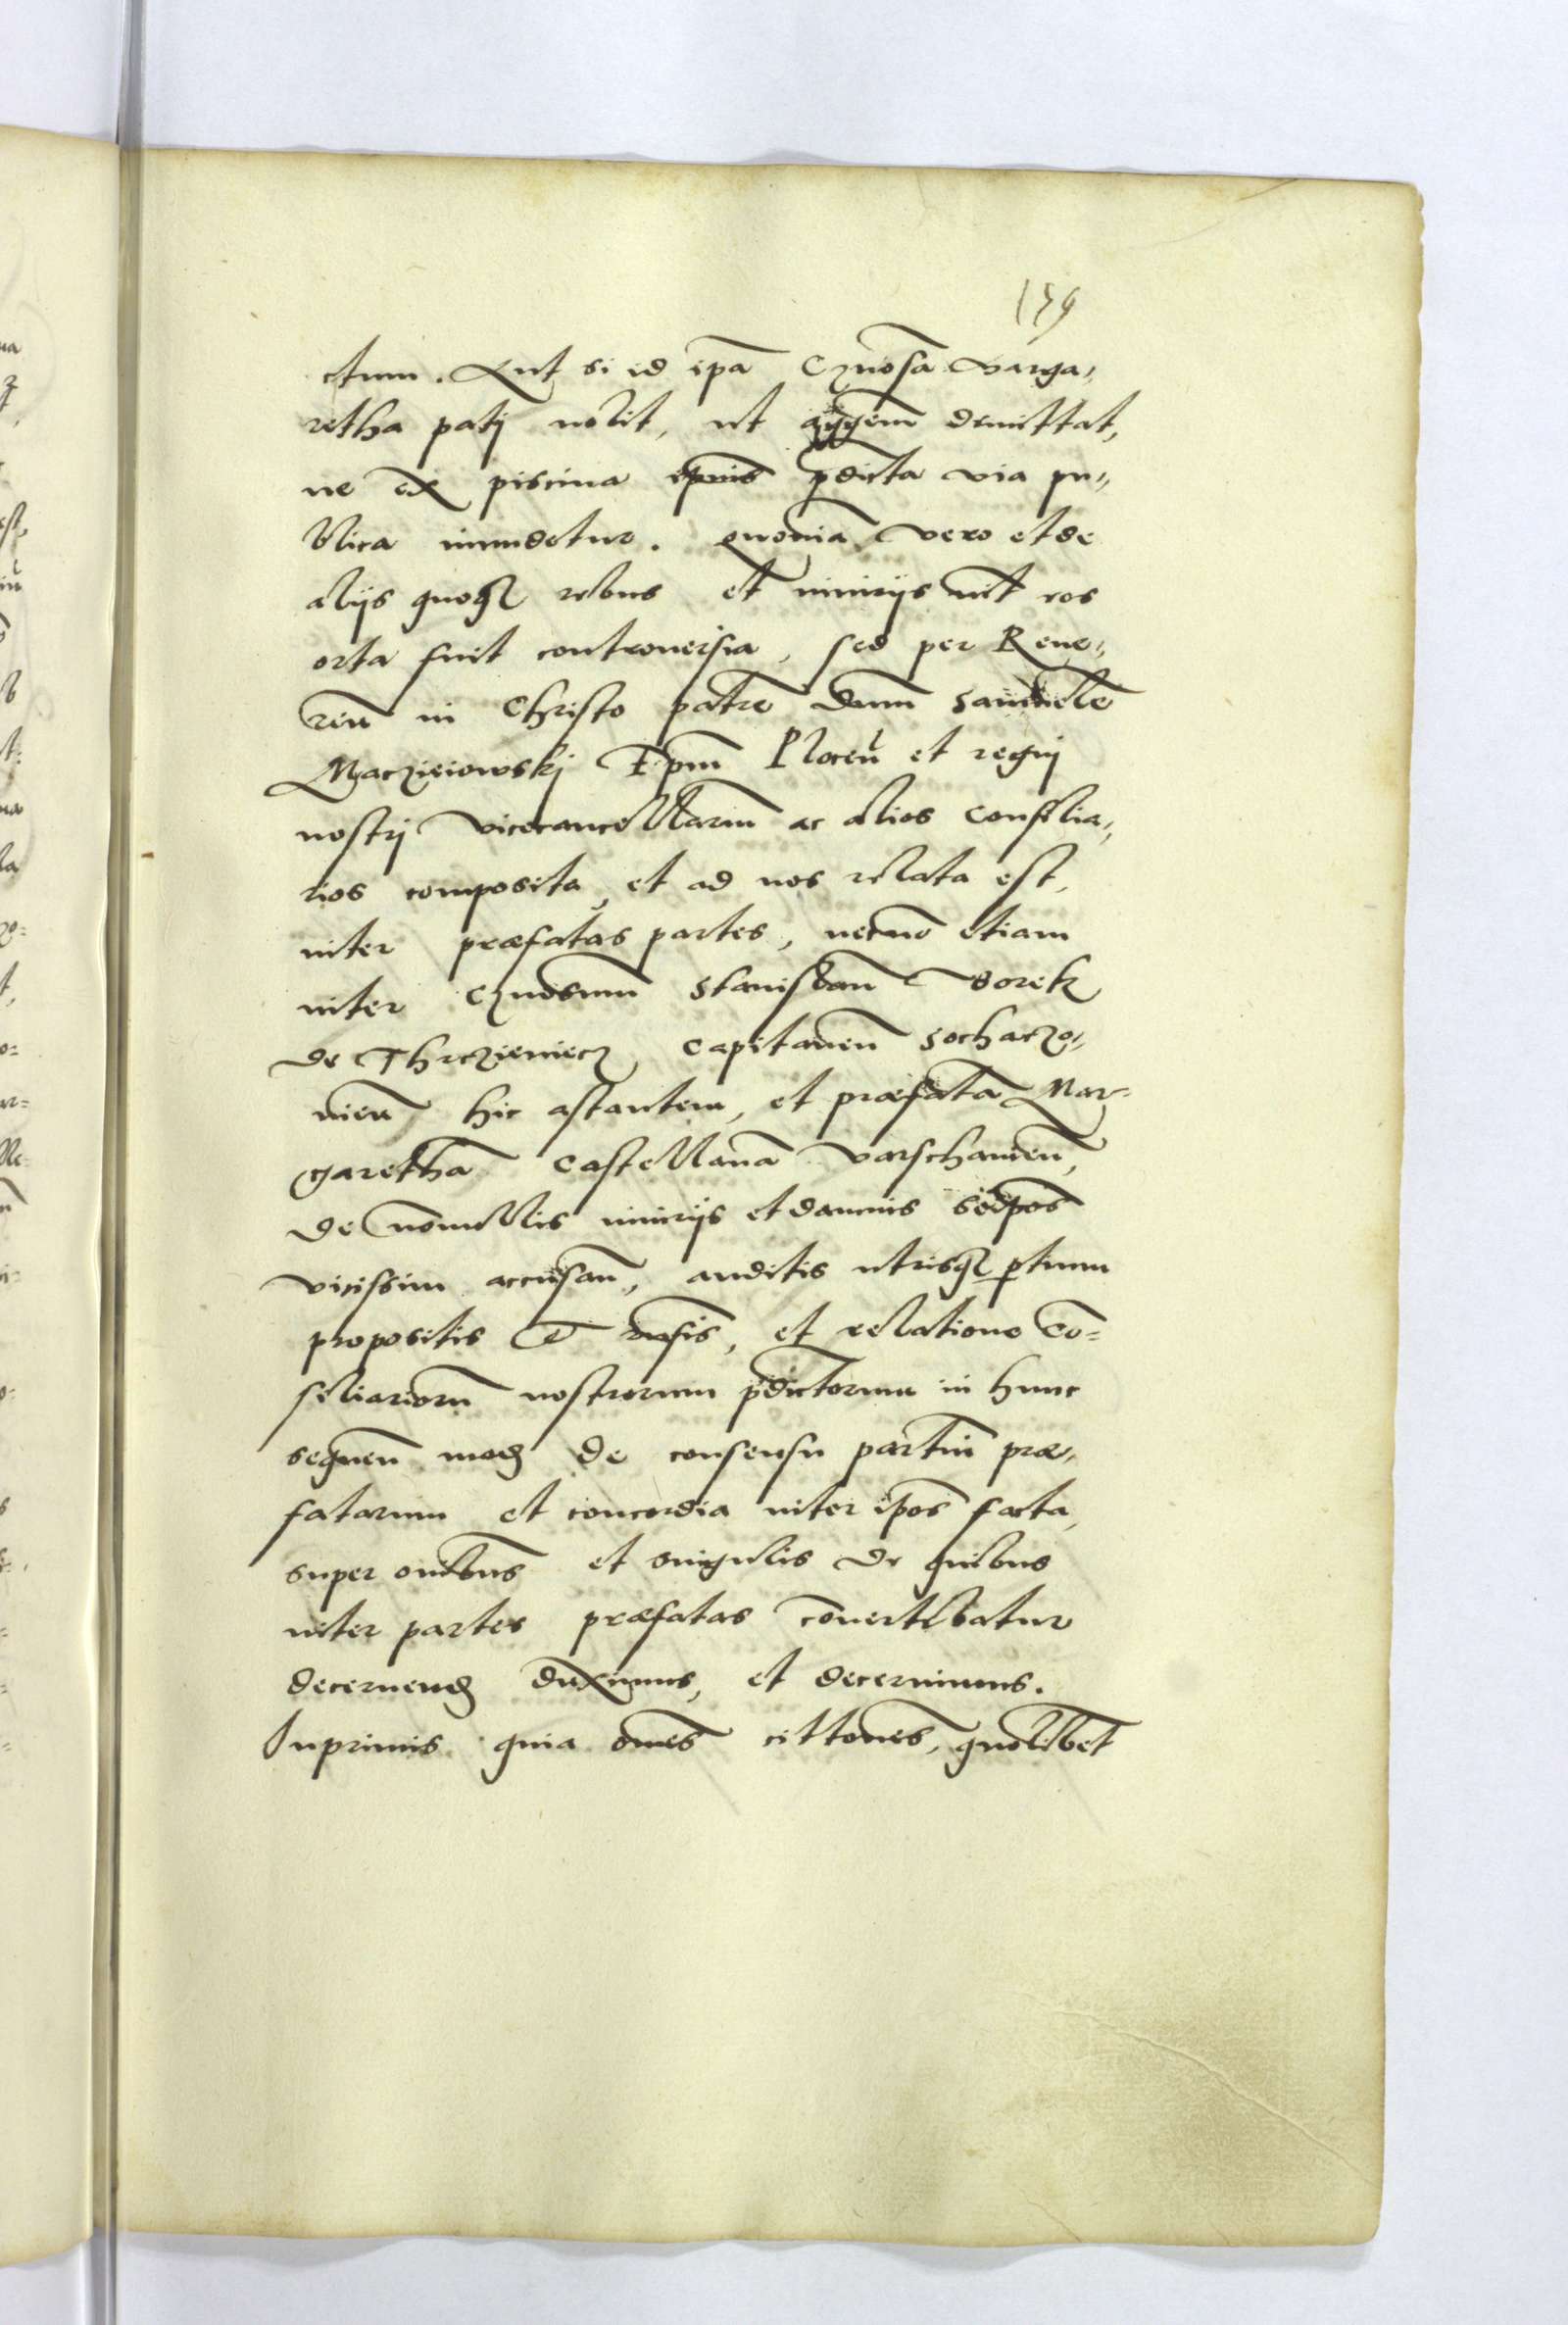 159
ctum. Aut si id ipa Gnosa Marga,
retha pati nolit, ut aggem demittat,
ne ex piscina ipius pdicta via pu,
blica inundetur. quonia vero et de
alijs quoq rebus et iniurijs int eos
orta fuit controuersia, sed per Reue,
ren in Christo patre Dnum Samuele
Maczieiowskj Epm Plocen et regni
nostrj vicecancellarium ac alios Consilia,
rios composita, et ad nos relata est,
inter præfatas partes, necno etiam
inter Gnosum Stanislaum Worek
de Threzieniecz Capitaneu Sochaczo,
uien hic astantem, et præfata Mar-
garetha Castellana Varschauien,
de nonnullis iniurijs et damnis sedpos
vicissim accusan, auditis utrisq ptium
propositis et rnsis, et relatione Co-
siliariorum nostrorum pdictorum in hunc
sequen mod de consensu partium præ,
fatarum et concordia inter ipos facta,
super omibus et singulis de quibus
inter partes præfatas couertebatur
decernend duximus, et decernimus.
Inprimis quia omes cittones, quolibet